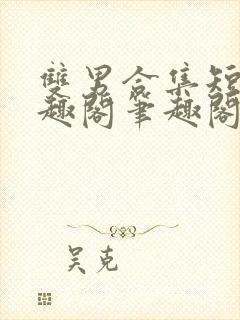 雙男合集短
趣閣筆趣閣
吴克